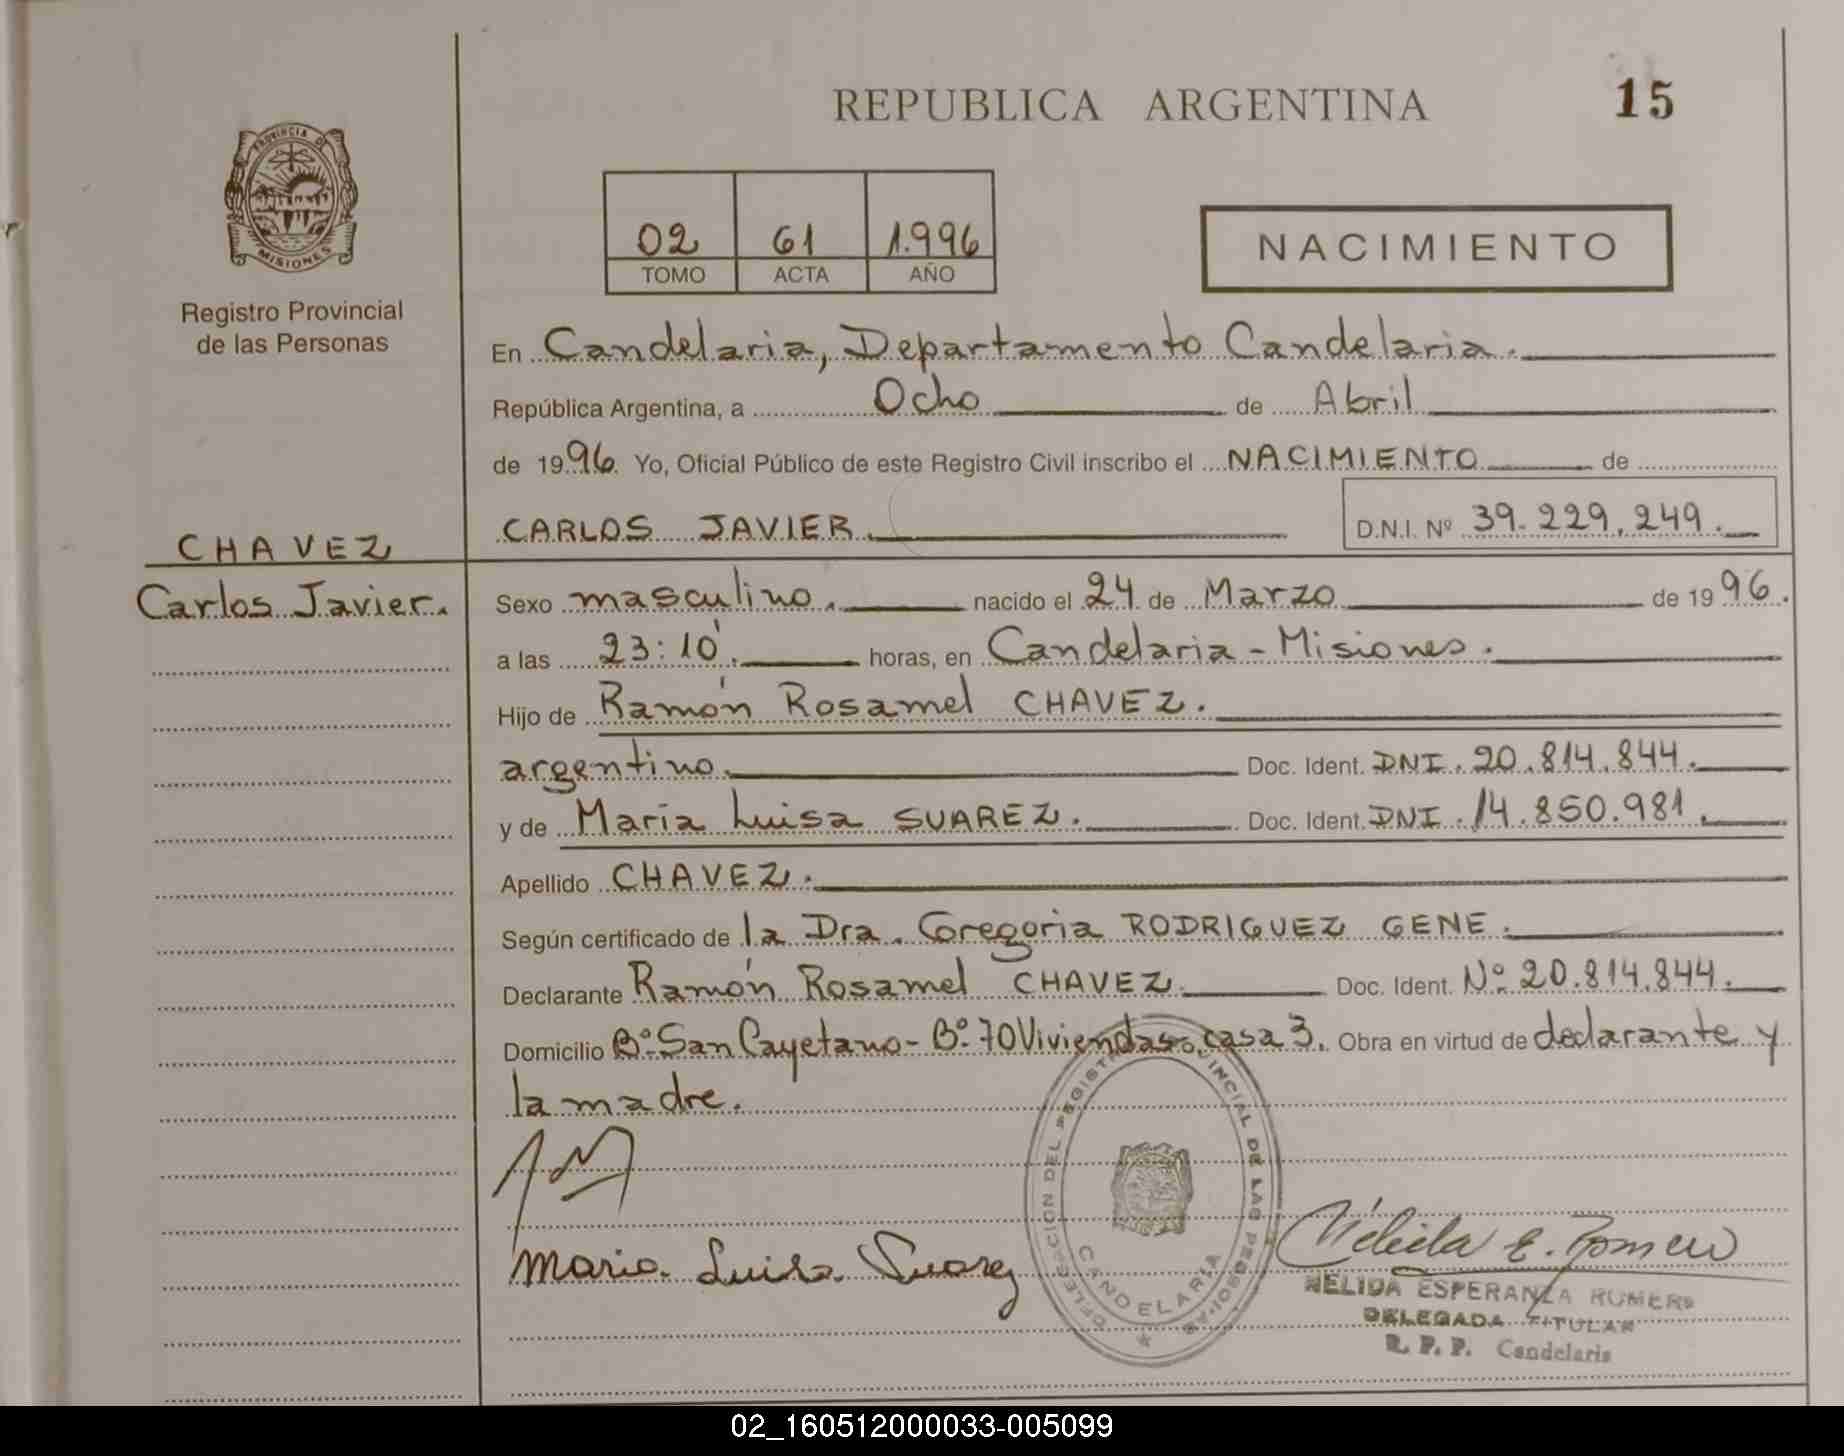 REPUBLICA ARGENTINA
15
PROVINCIA DE
MISIONES
Registro Provincial
de las Personas
02 61 1.996
TOMO ACTA AÑO
NACIMIENTO
En Candelaria, Departamento Candelaria.
República Argentina, a Ocho de Abril
de 1996. Yo, Oficial Público de este Registro Civil inscribo el NACIMIENTO de
CARLOS JAVIER. D.N.I. Nº 39.229.249.
CHAVEZ
Carlos Javier.
Sexo masculino. nacido el 24 de Marzo de 1996.
a las 23:10'. horas, en Candelaria - Misiones.
Hijo de Ramón Rosamel CHAVEZ.
argentino. Doc. Ident. DNI. 20.814.844.
y de María Luisa SUAREZ. Doc. Ident. DNI. 14.850.981.
Apellido CHAVEZ.
Según certificado de la Dra. Gregoria RODRIGUEZ GENE.
Declarante Ramón Rosamel CHAVEZ. Doc. Ident. Nº 20.814.844.
Domicilio Bº San Cayetano - Bº 70 Viviendas, casa 3. Obra en virtud de declarante y
la madre.
Maria Luisa Suarez
Nélida E. Romero
NELIDA ESPERANZA ROMERO
DELEGADA TITULAR
R. P. P. Candelaria
DELEGACION DEL REGISTRO PROVINCIAL DE LAS PERSONAS
CANDELARIA
02_160512000033-005099